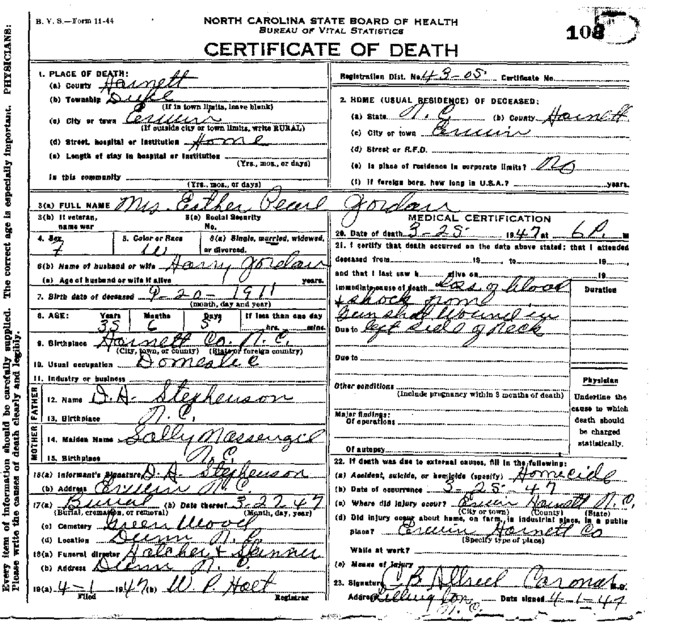 B. V. S.—Form 11-44
NORTH CAROLINA STATE BOARD OF HEALTH
BUREAU OF VITAL STATISTICS
CERTIFICATE OF DEATH
108
Every item of information should be carefully supplied. The correct age is especially important. PHYSICIANS:
Please write the causes of death clearly and legibly.
1. PLACE OF DEATH:
(a) County Harnett
(b) Township Duke
(If in town limits, leave blank)
(c) City or town Erwin
(If outside city or town limits, write RURAL)
(d) Street, hospital or institution Home
(e) Length of stay in hospital or institution
(Yrs., mos., or days)
In this community
(Yrs., mos., or days)
Registration Dist. No. 43-05 Certificate No.
2. HOME (USUAL RESIDENCE) OF DECEASED:
(a) State N. C. (b) County Harnett
(c) City or town Erwin
(d) Street or R.F.D.
(e) Is place of residence in corporate limits? No
(f) If foreign born, how long in U.S.A.? years.
3(a) FULL NAME Mrs. Esther Pearl Jordan
3(b) If veteran, name war
3(c) Social Security No.
4. Sex F
5. Color or Race W
6(a) Single, married, widowed, or divorced.
6(b) Name of husband or wife Harry Jordan
(c) Age of husband or wife if alive years.
7. Birth date of deceased 9-20-1911
(month, day and year)
8. AGE: Years Months Days If less than one day
35 6 5 hrs. mins.
9. Birthplace Harnett Co. N. C.
(City, town, or county) (State or foreign country)
10. Usual occupation Domestic
11. Industry or business
FATHER
12. Name D. A. Stephenson
13. Birthplace N. C.
MOTHER
14. Maiden Name Sally Massengil
15. Birthplace N. C.
16(a) Informant's Signature D. A. Stephenson
(b) Address Erwin N. C.
17(a) Burial (b) Date thereof 3-27-47
(Burial, cremation, or removal) (Month, day, year)
(c) Cemetery Green Wood
(d) Location Dunn N. C.
18(a) Funeral director Hatcher & Skinner
(b) Address Dunn N. C.
19(a) 4-1 1947 (b) W. P. Holt
Filed Registrar
MEDICAL CERTIFICATION
20. Date of death 3-25 1947 at 6 P. M
21. I certify that death occurred on the date above stated; that I attended
deceased from 19 to 19
and that I last saw h alive on 19
Immediate cause of death Loss of blood
& shock from
Gun shot wound in
Due to left side of neck
Due to
Duration
Other conditions
(Include pregnancy within 3 months of death)
Major findings:
Of operations
Of autopsy
Physician
Underline the cause to which death should be charged statistically.
22. If death was due to external causes, fill in the following:
(a) Accident, suicide, or homicide (specify) Homicide
(b) Date of occurrence 3-25-47
(c) Where did injury occur? Erwin Harnett N. C.
(City or town) (County) (State)
(d) Did injury occur about home, on farm, in industrial place, in a public
place? Erwin Harnett Co
(Specify type of place)
While at work?
(e) Means of injury
23. Signature C B Allred Coroner M.D.
Address Lillington N. C. Date signed 4-1-47